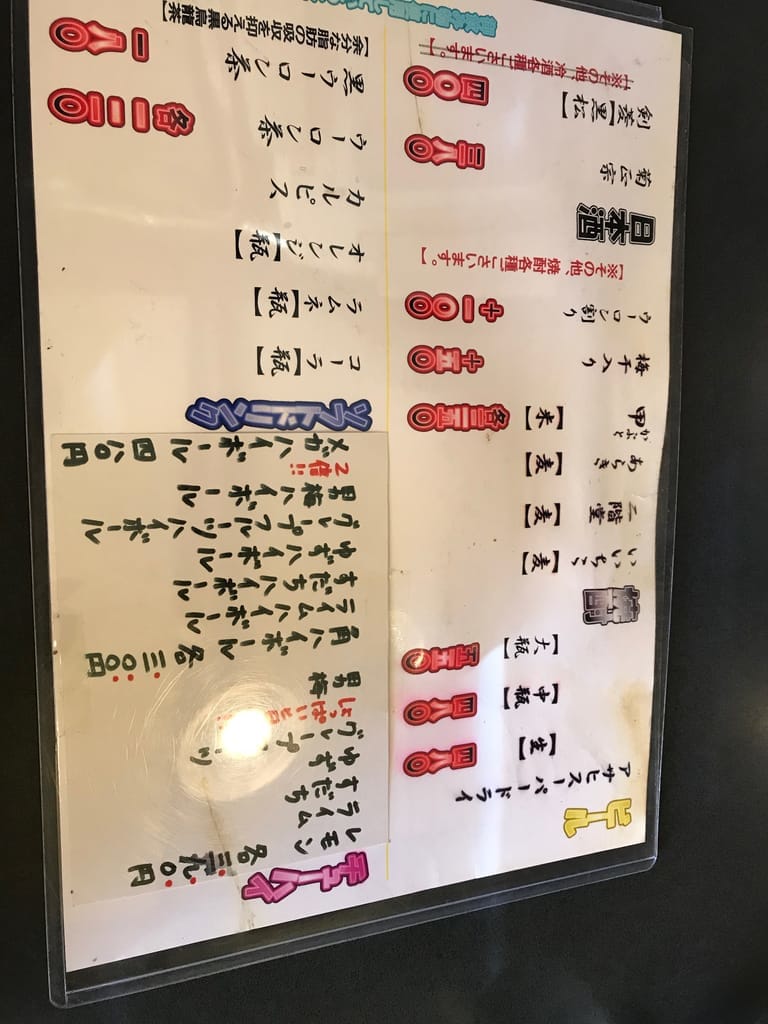 ビール
アサヒスーパードライ
【生】 四八〇
【中瓶】 四八〇
【大瓶】 五五〇
焼酎
いいちこ【麦】
二階堂【麦】
あらき【麦】
かぶと
甲【米】 各三五〇
梅干入り +五〇
ウーロン割り +一〇〇
【※その他、焼酎各種ございます。】
日本酒
菊正宗 二八〇
剣菱【黒松】 四〇〇
【※その他、冷酒各種ございます。】
チューハイ
レモン 各三九〇円
ライム
すだち
ゆず
グレープ
男梅
角ハイボール 各三〇〇円
ライムハイボール
すだちハイボール
ゆずハイボール
グレープフルーツハイボール
男梅ハイボール
2倍!!
メガハイボール 四八〇円
ソフトドリンク
コーラ【瓶】
ラムネ【瓶】
オレンジ【瓶】
カルピス
ウーロン茶
黒ウーロン茶 一八〇
【余分な脂肪の吸収を抑える黒烏龍茶】